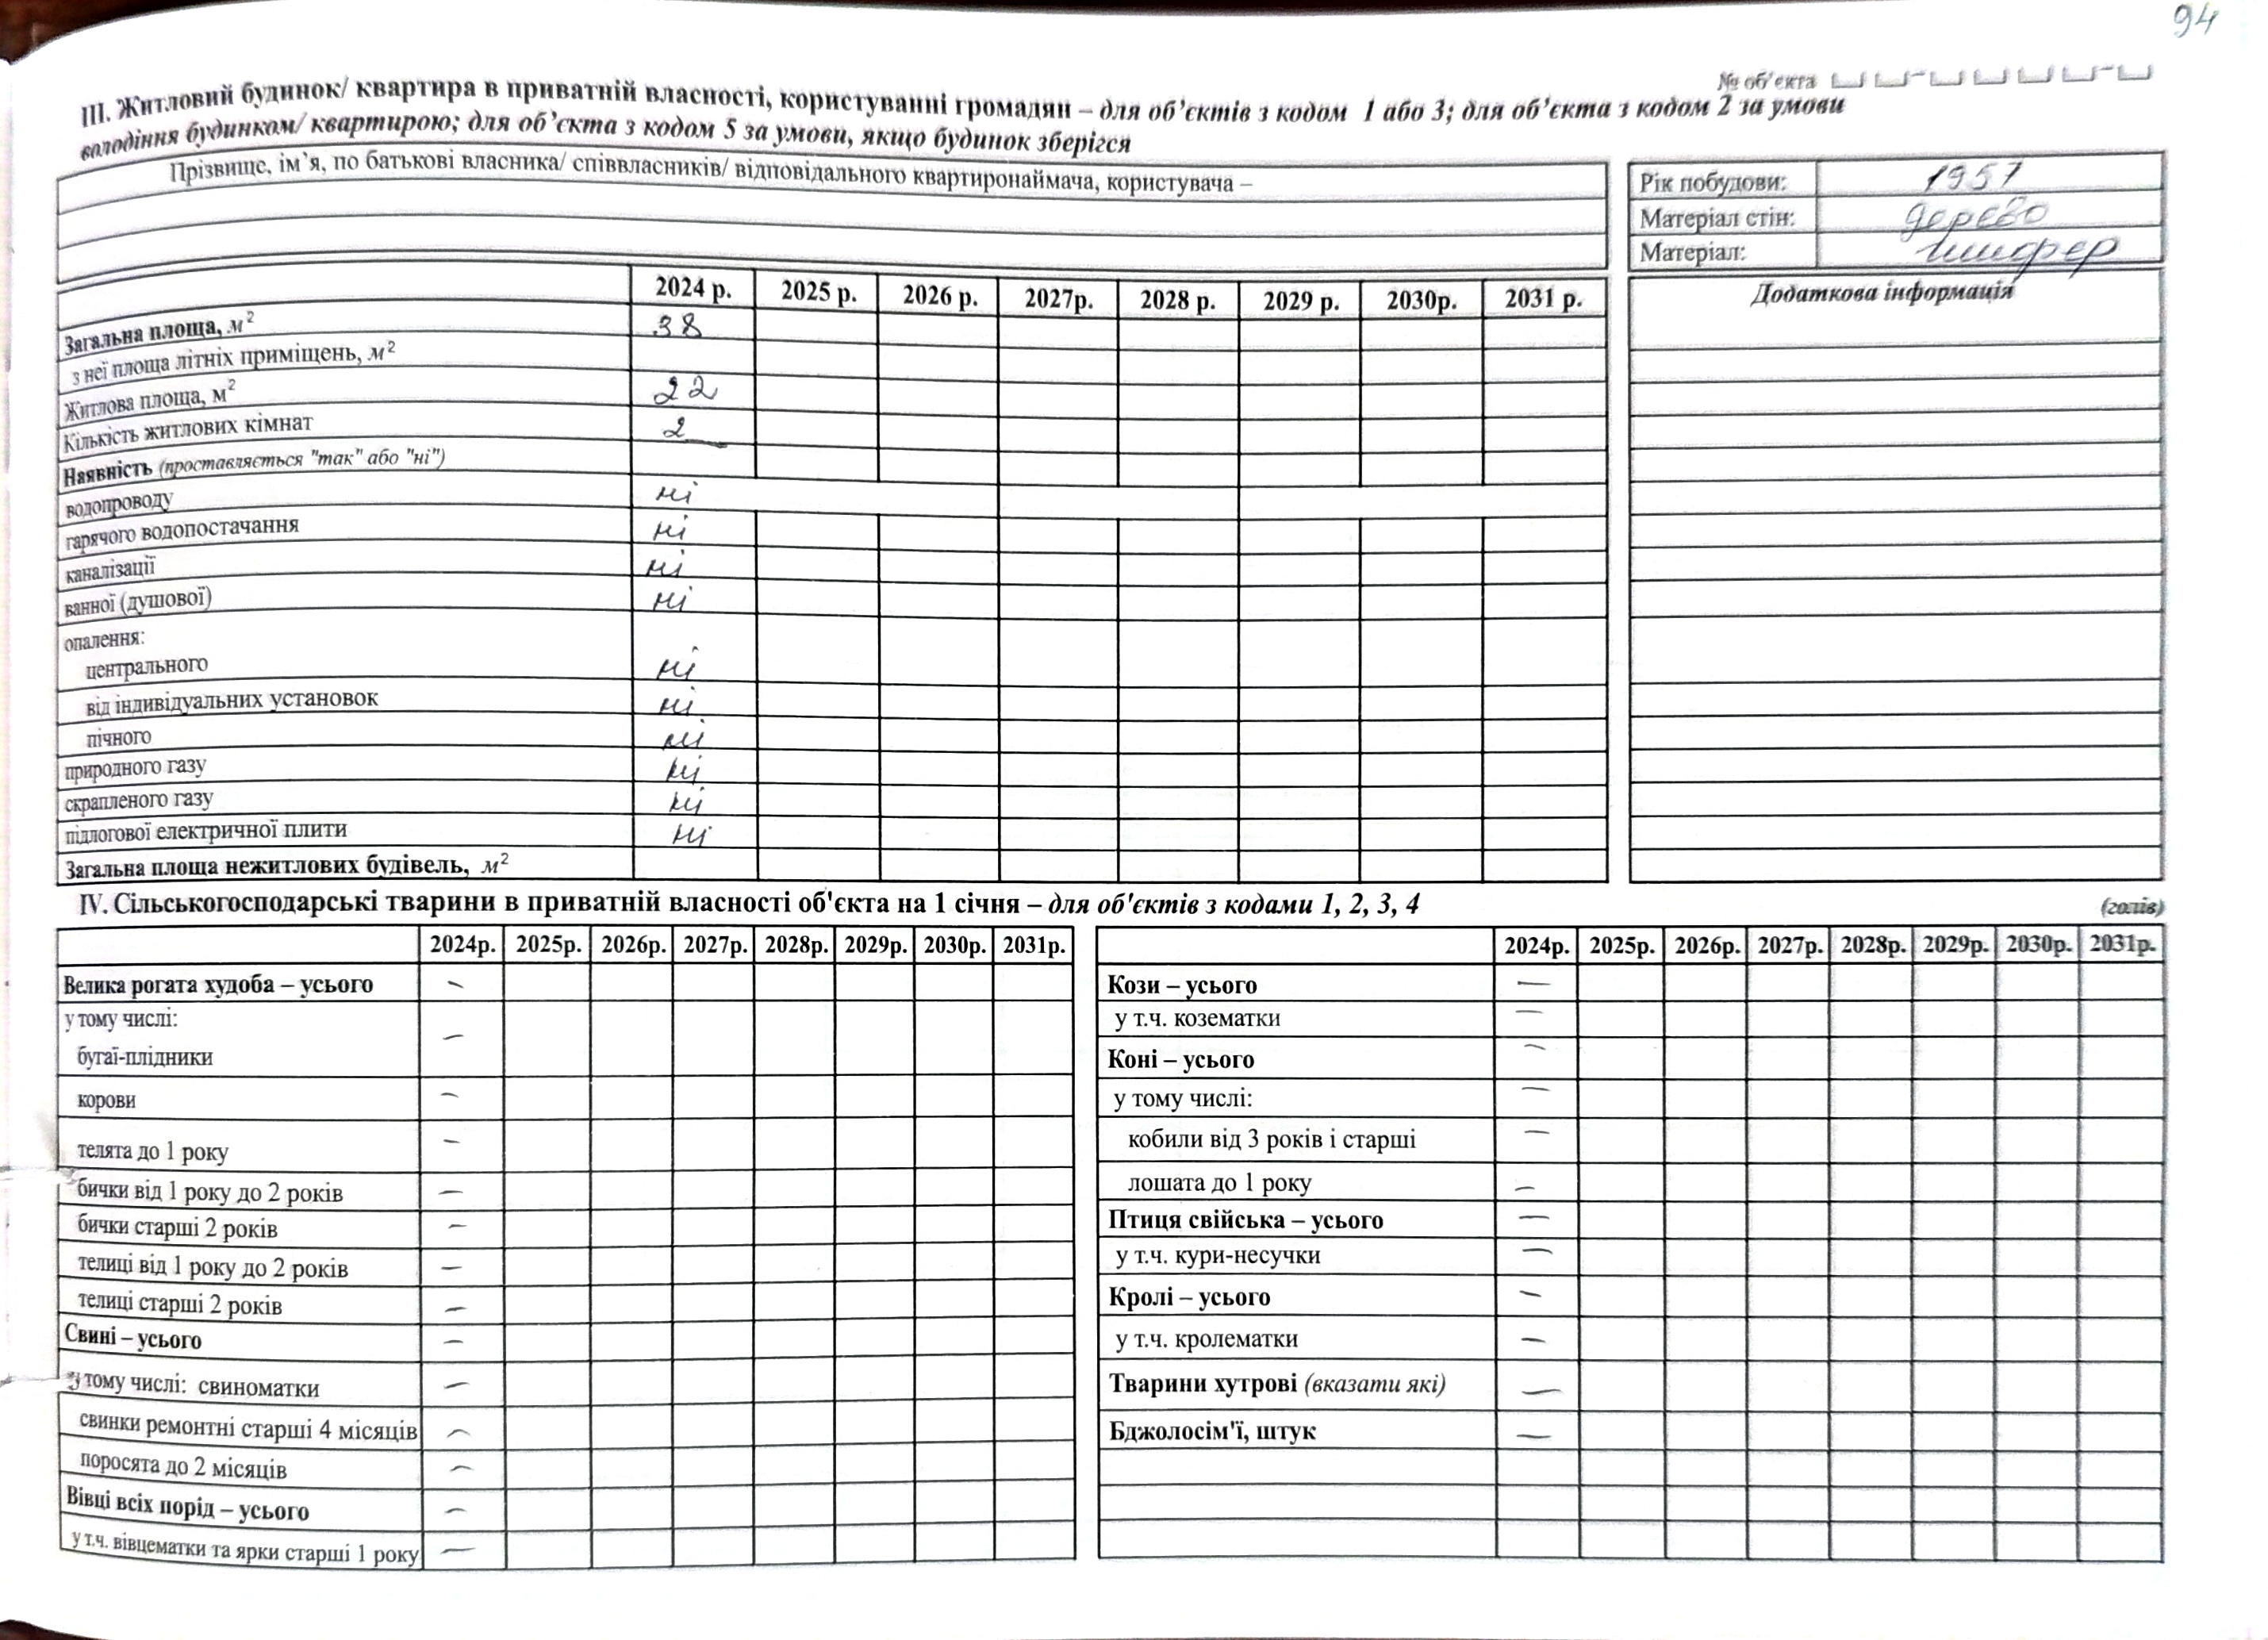 94
№ об'єкта
III. Житловий будинок/ квартира в приватній власності, користуванні громадян – для об'єктів з кодом 1 або 3; для об'єкта з кодом 2 за умови
володіння будинком/ квартирою; для об'єкта з кодом 5 за умови, якщо будинок зберігся
Прізвище, ім`я, по батькові власника/ співвласників/ відповідального квартиронаймача, користувача –
Рік побудови: 1957
Матеріал стін: дерево
Матеріал: шифер
Додаткова інформація
2024 р. 2025 р. 2026 р. 2027р. 2028 р. 2029 р. 2030р. 2031 р.
Загальна площа, м² 38
з неї площа літніх приміщень, м²
Житлова площа, м² 22
Кількість житлових кімнат 2
Наявність (проставляється "так" або "ні")
водопроводу ні
гарячого водопостачання ні
каналізації ні
ванної (душової) ні
опалення:
центрального ні
від індивідуальних установок ні
пічного ні
природного газу ні
скрапленого газу ні
підлогової електричної плити ні
Загальна площа нежитлових будівель, м²
IV. Сільськогосподарські тварини в приватній власності об'єкта на 1 січня – для об'єктів з кодами 1, 2, 3, 4
(голів)
2024р. 2025р. 2026р. 2027р. 2028р. 2029р. 2030р. 2031р.
Велика рогата худоба – усього –
у тому числі: –
бугаї-плідники
корови –
телята до 1 року –
бички від 1 року до 2 років –
бички старші 2 років –
телиці від 1 року до 2 років –
телиці старші 2 років –
Свині – усього –
у тому числі: свиноматки –
свинки ремонтні старші 4 місяців –
поросята до 2 місяців –
Вівці всіх порід – усього –
у т.ч. вівцематки та ярки старші 1 року –
2024р. 2025р. 2026р. 2027р. 2028р. 2029р. 2030р. 2031р.
Кози – усього –
у т.ч. козематки –
Коні – усього –
у тому числі: –
кобили від 3 років і старші –
лошата до 1 року –
Птиця свійська – усього –
у т.ч. кури-несучки –
Кролі – усього –
у т.ч. кролематки –
Тварини хутрові (вказати які) –
Бджолосім'ї, штук –